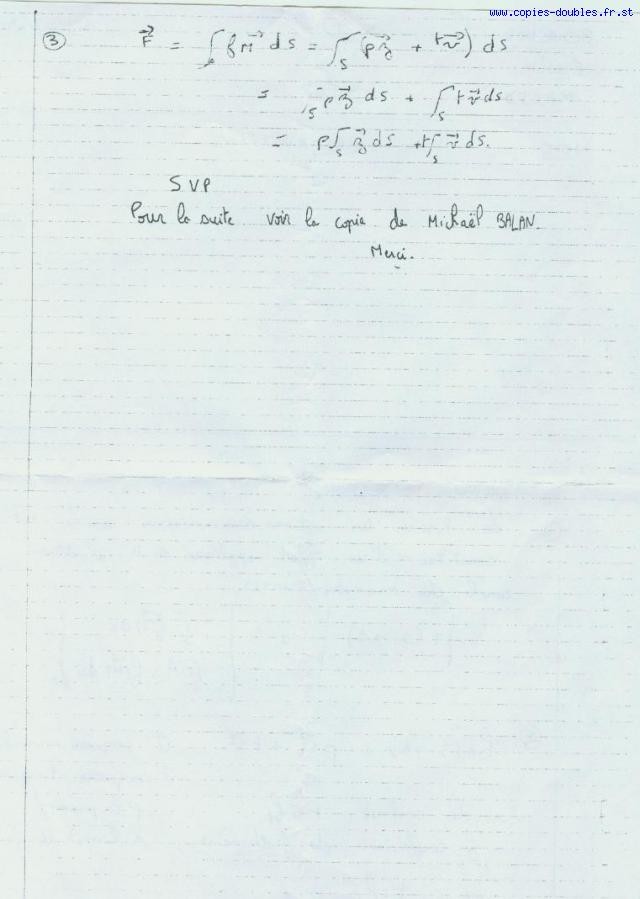 www.copies-doubles.fr.st
③ F⃗ = ∫ f m⃗ ds = ∫_S (p z⃗ + t v⃗) ds
= ∫_S p z⃗ ds + ∫_S t v⃗ ds
= p ∫_S z⃗ ds + t ∫_S v⃗ ds.
SVP
Pour la suite voir la copie de Michaël BALAN.
Merci.